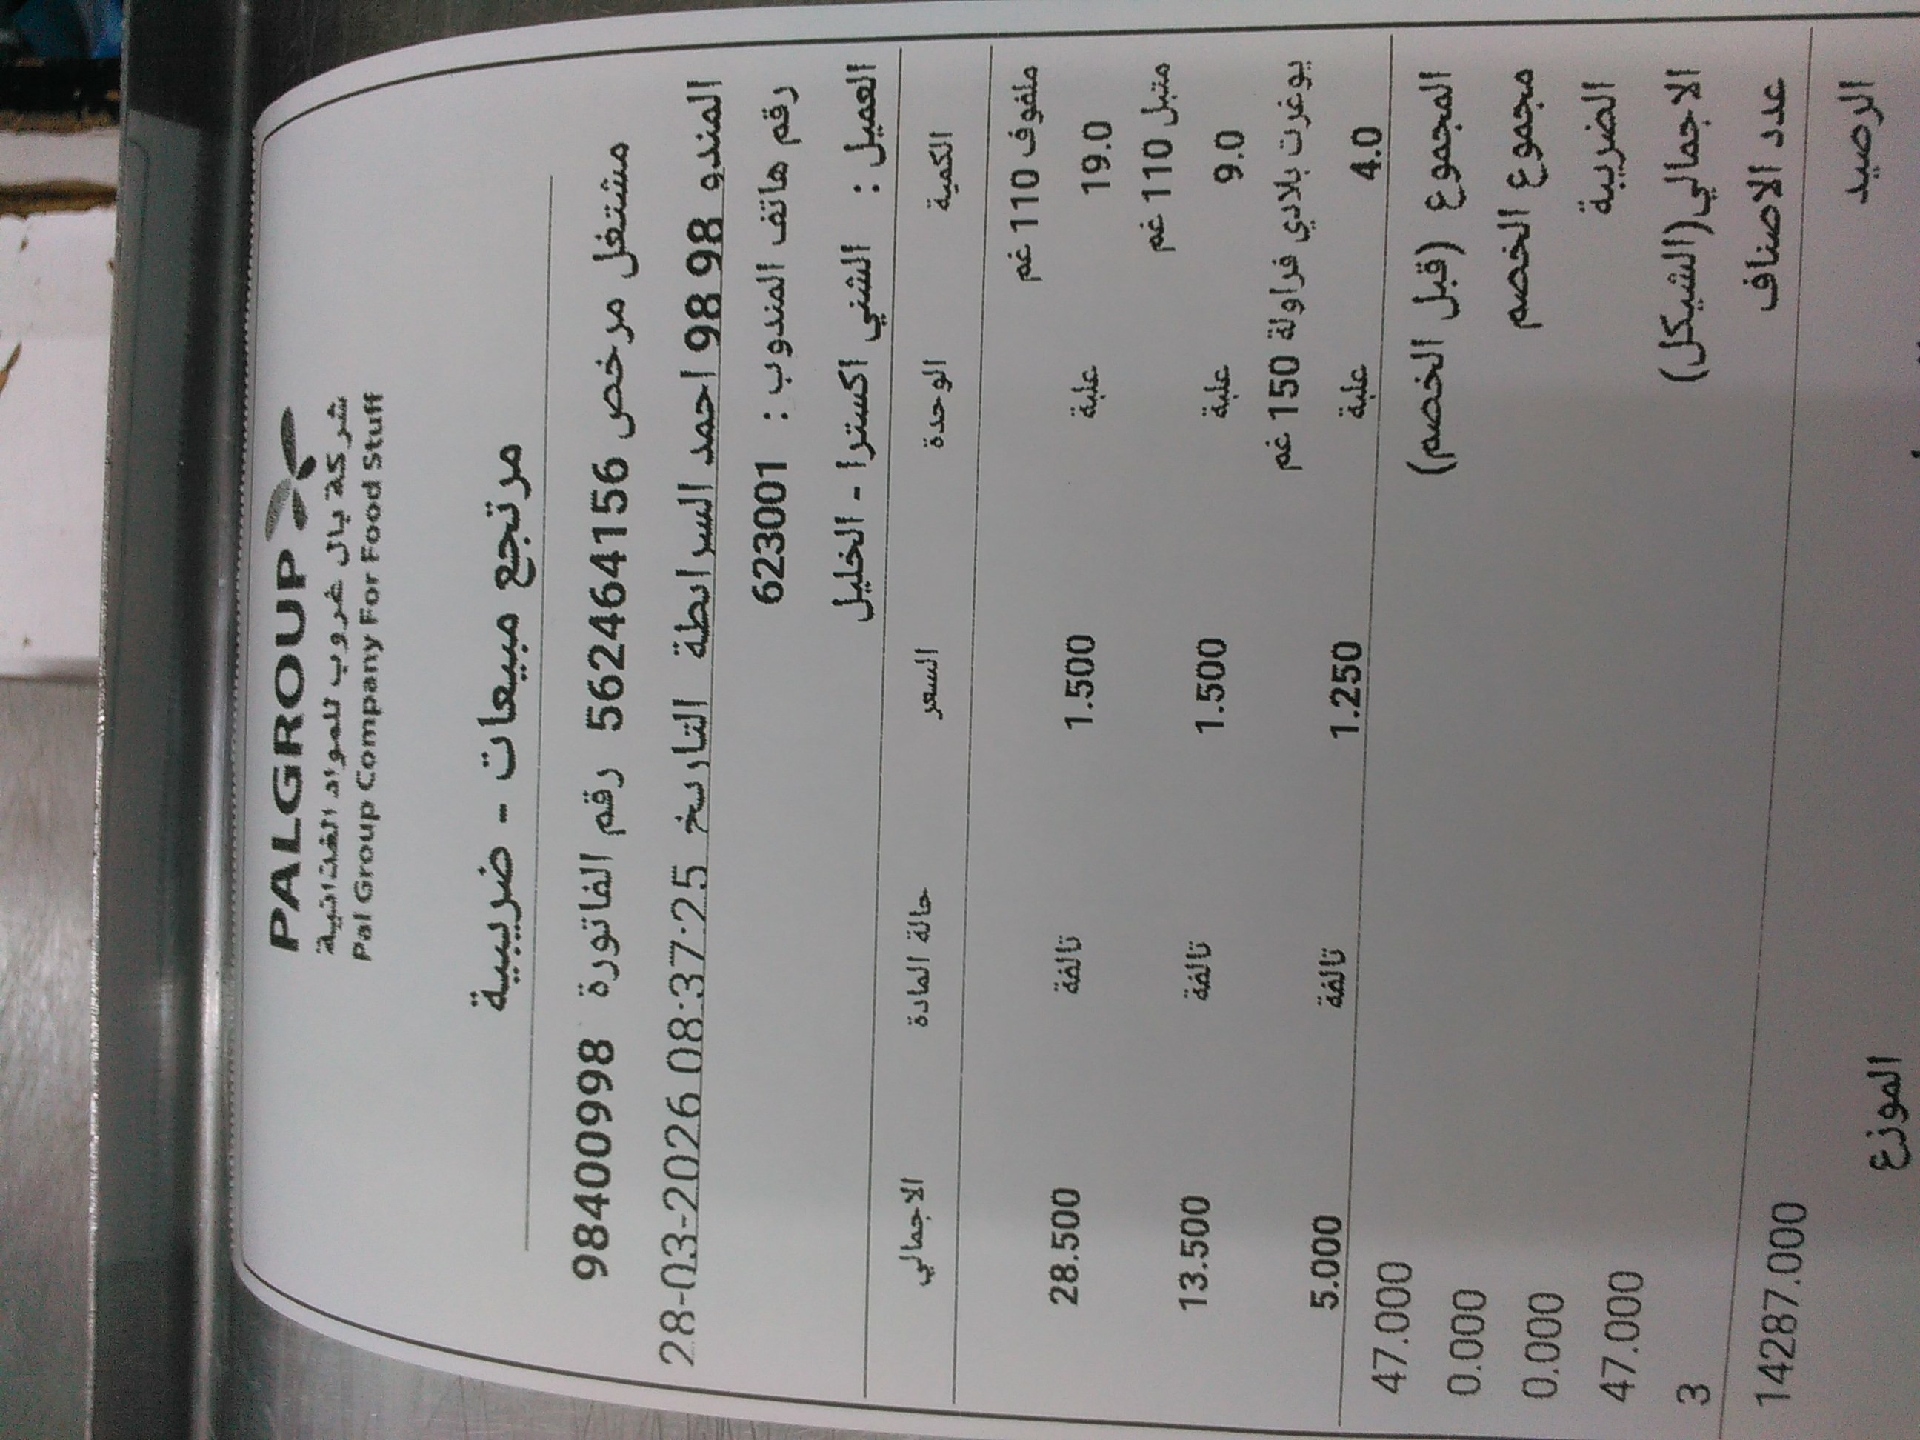 PALGROUP
شركة بال غروب للمواد الغذائية
Pal Group Company For Food Stuff
مرتجع مبيعات - ضريبية
مشتغل مرخص 562464156 رقم الفاتورة 98400998
المندو 98 98 احمد السرابطة التاريخ 28-03-2026 08:37:25
رقم هاتف المندوب : 623001
العميل : الشني اكسترا - الخليل
الكمية الوحدة السعر حالة المادة الاجمالي
ملفوف 110 غم
19.0 علبة 1.500 تالفة 28.500
متبل 110 غم
9.0 علبة 1.500 تالفة 13.500
يوغرت بلادي فراولة 150 غم
4.0 علبة 1.250 تالفة 5.000
المجموع (قبل الخصم) 47.000
مجموع الخصم 0.000
الضريبة 0.000
الاجمالي(الشيكل) 47.000
عدد الاصناف 3
الرصيد 14287.000
الموزع